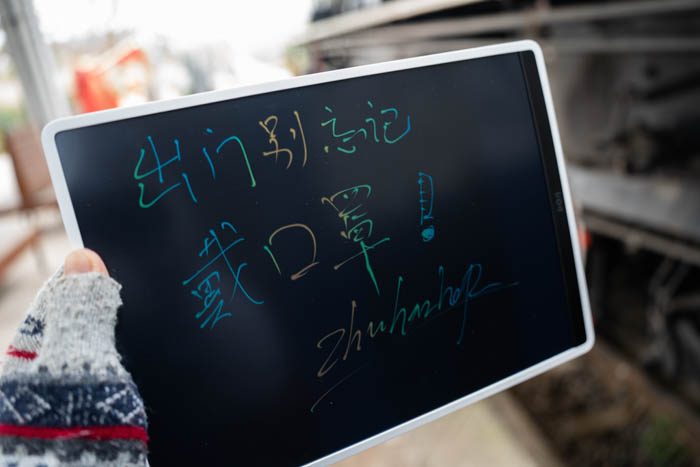 出门别忘记
戴口罩!